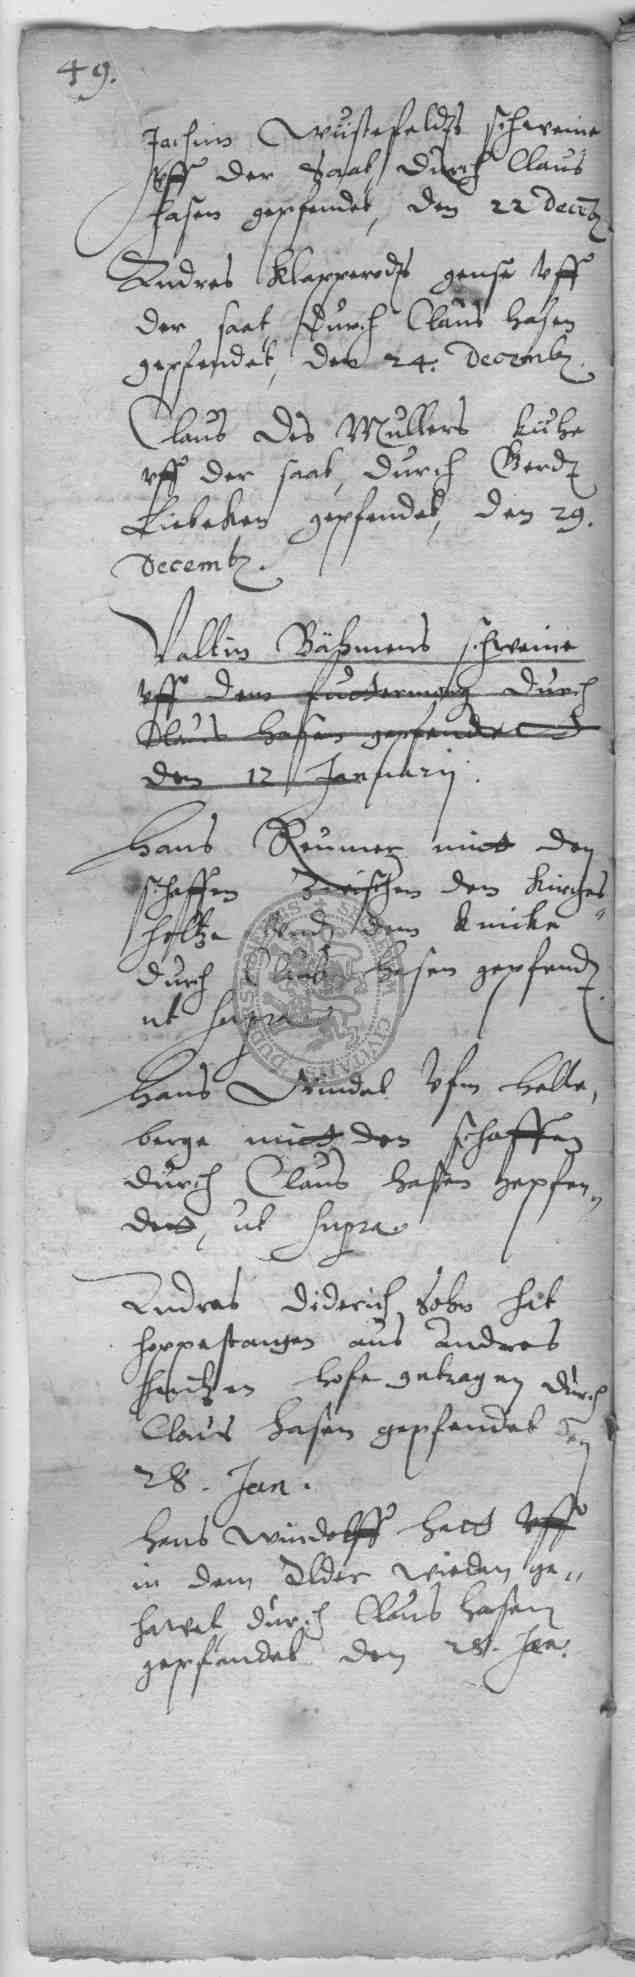 49.
Jachim Wüstefeldts schweine
vff der Saat durch Claus
hasen gepfendet, den 22 Decemb.
Andres Klapperodts gense vff
der saat durch Claus hasen
gepfendet, den 24. Decemb.
Claus des Mullers kühe
vff der saat, durch Gerdt
Liebeken gepfendet, den 29.
Decemb.
Valtin Bäsmens schweine
vff dem durch
Claus hasen gepfendett
den 12 Januarij.
Hans Reumer mitt den
schaffen zwischen dem
holtze vnd dem knicke
durch Claus hasen gepfendt
ut supra
Hans Windel vfm Helle,
berge mitt den schaffen
durch Claus hasen gepfen,,
dett, ut supra.
Andres Diderich Sohn hat
hoppestangen aus Andres
hofe getragen durch
Claus hasen gepfendet den
28. Jan.
Hans Windolff hatt vff
in dem Alder wieden ge,,
hawet durch Claus hasen
gepfandet den 28. Jan.